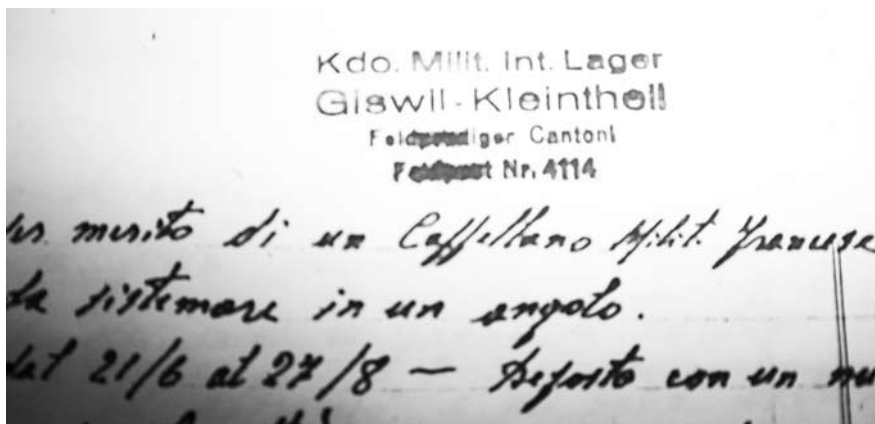 Kdo. Milit. Int. Lager
Giswil-Kleintheil
Feldprediger Cantoni
Feldpost Nr. 4114
merito di un Cappellano Milit. Francese
da sistemare in un angolo.
dal 21/6 al 27/8 — Deposto con un